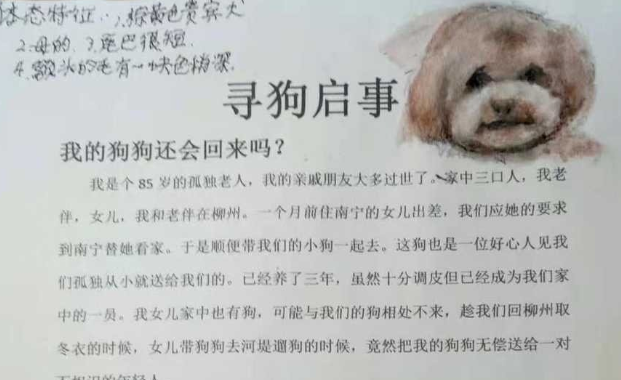 体态特征：1,棕黄色贵宾犬
2.母的.3.尾巴很短.
4.额头的毛有一块色稍深.
寻狗启事
我的狗狗还会回来吗？
我是个 85 岁的孤独老人，我的亲戚朋友大多过世了。家中三口人，我老
伴，女儿，我和老伴在柳州。一个月前住南宁的女儿出差，我们应她的要求
到南宁替她看家。于是顺便带我们的小狗一起去。这狗也是一位好心人见我
们孤独从小就送给我们的。已经养了三年，虽然十分调皮但已经成为我们家
中的一员。我女儿家中也有狗，可能与我们的狗相处不来，趁我们回柳州取
冬衣的时候，女儿带狗狗去河堤遛狗的时候，竟然把我的狗狗无偿送给一对
不相识的年轻人